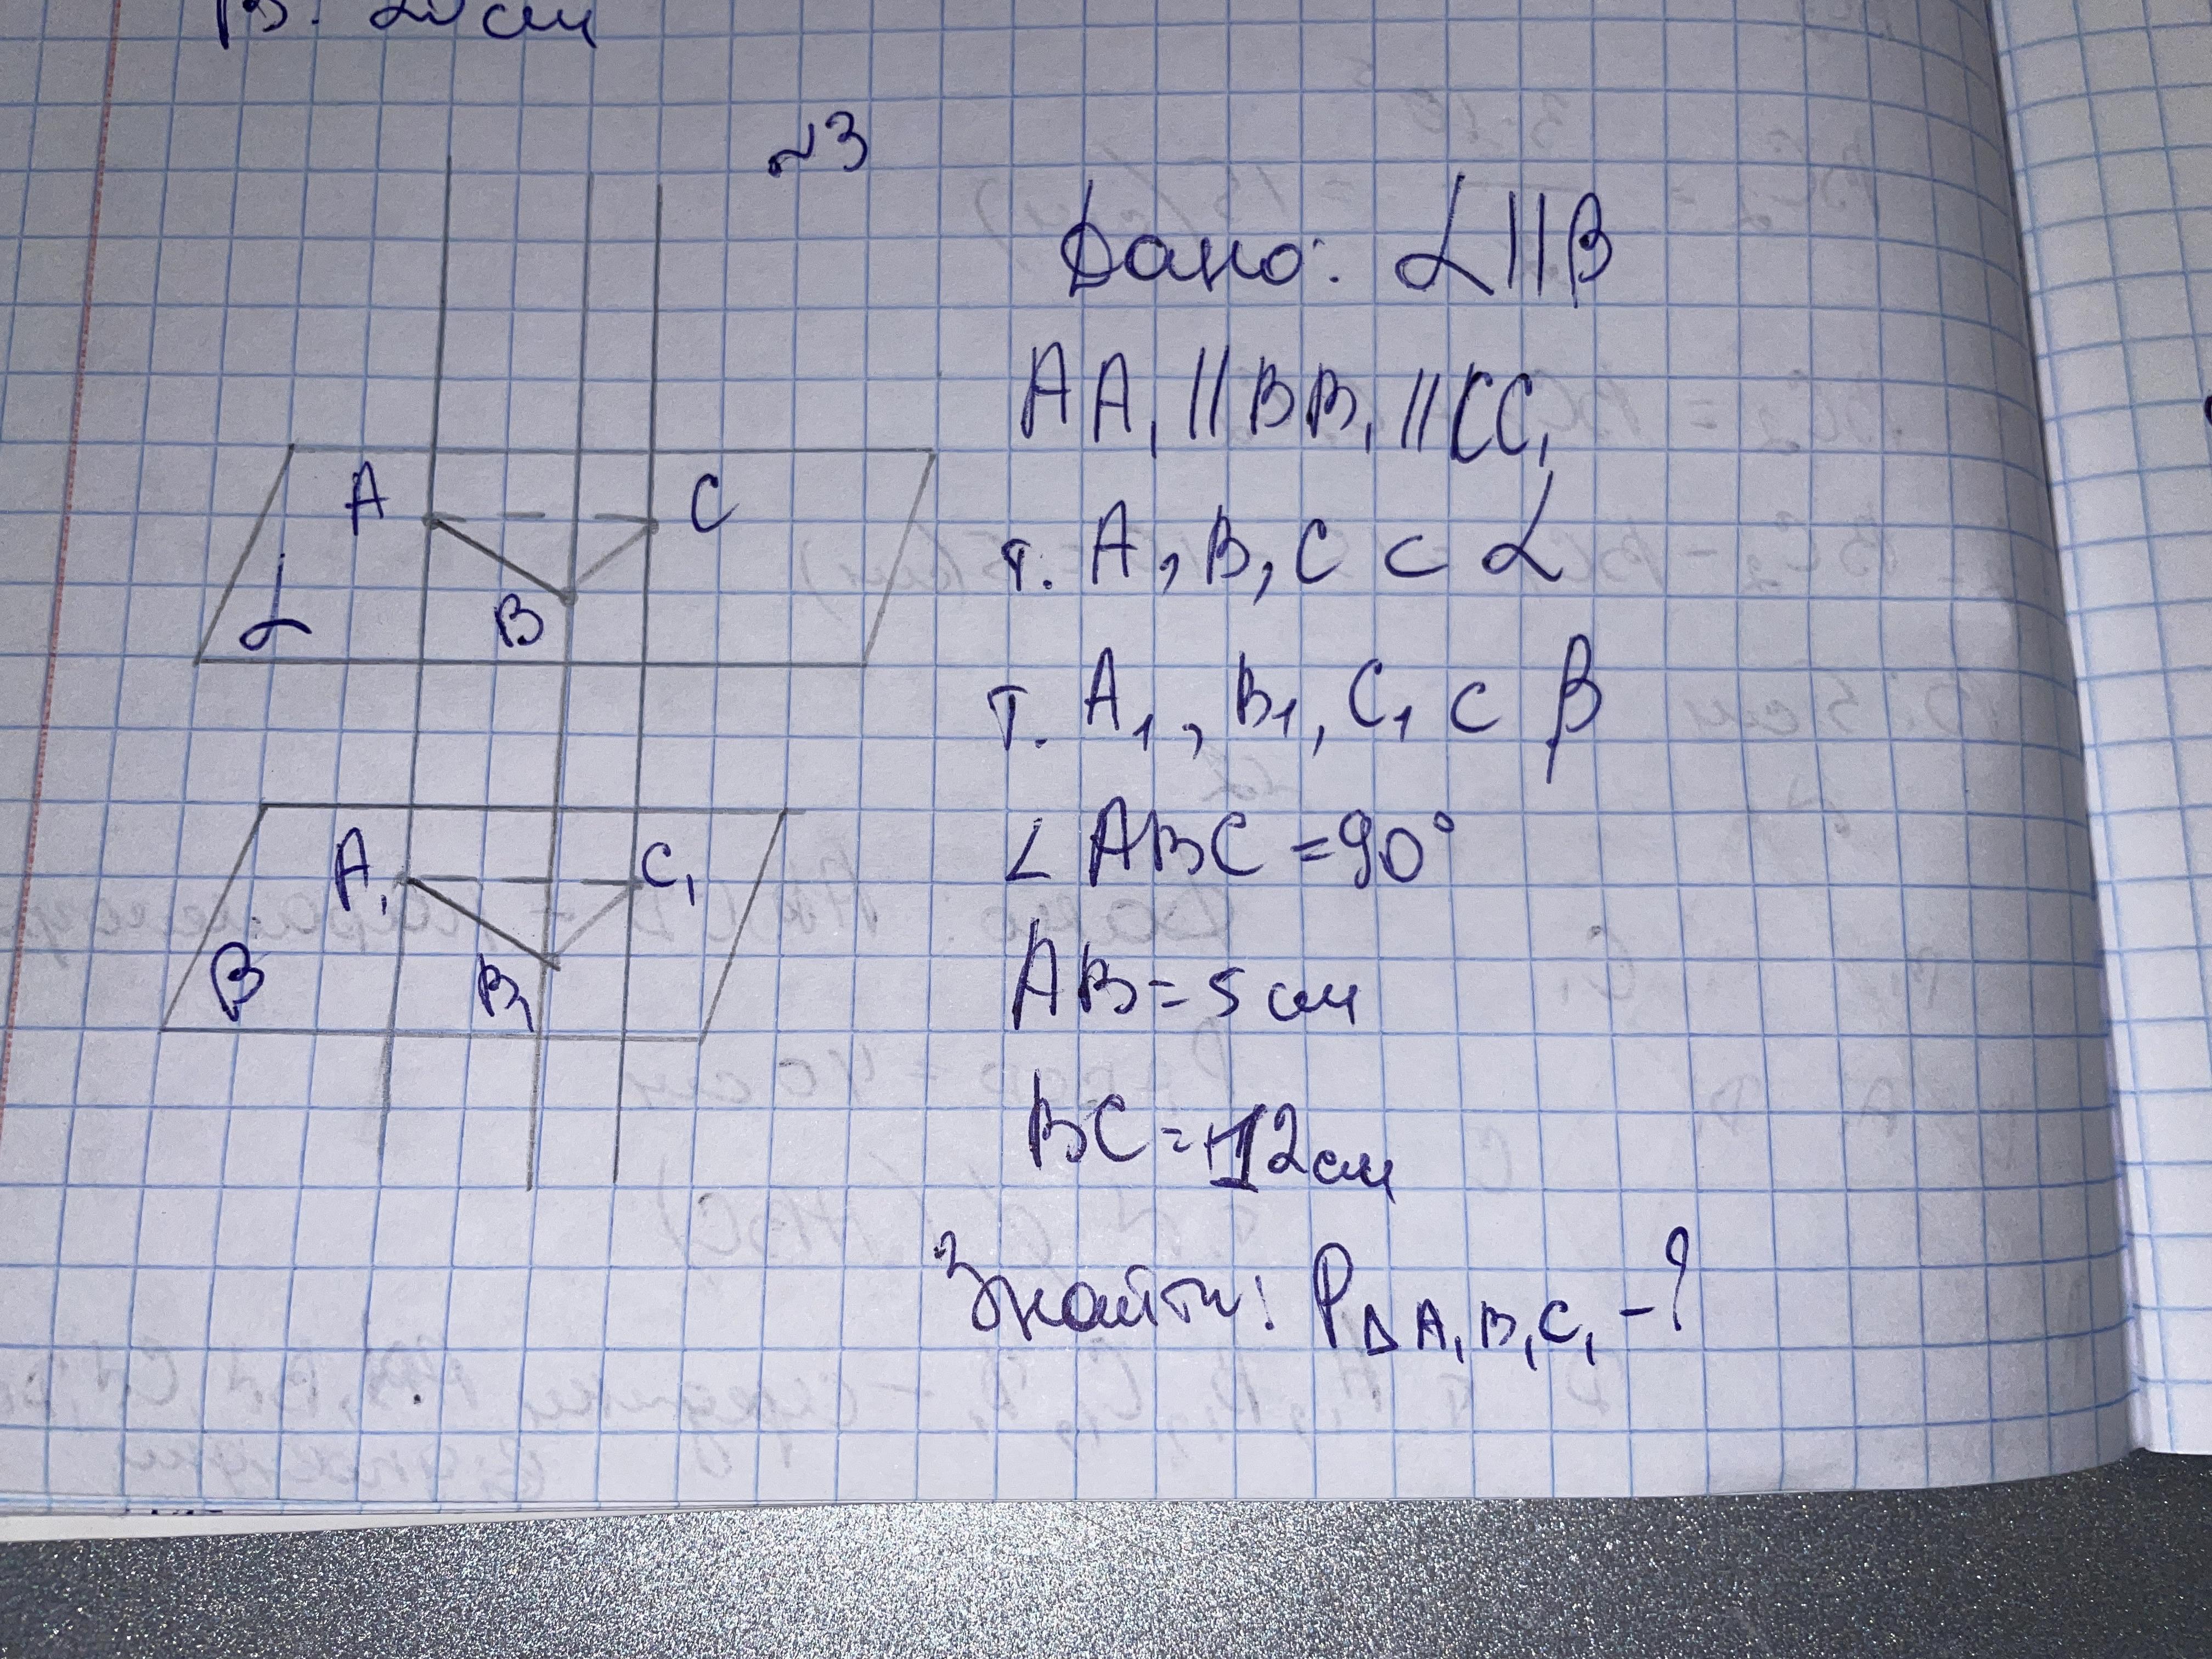 В: 20 см
~3
Дано: α||β
AA₁ || BB₁ || CC₁
т. A, B, C ⊂ α
т. A₁, B₁, C₁ ⊂ β
∠ ABC = 90°
AB = 5 см
BC = 12 см
Знайти: P△A₁B₁C₁ - ?
A
C
B
α
A₁
C₁
B₁
β